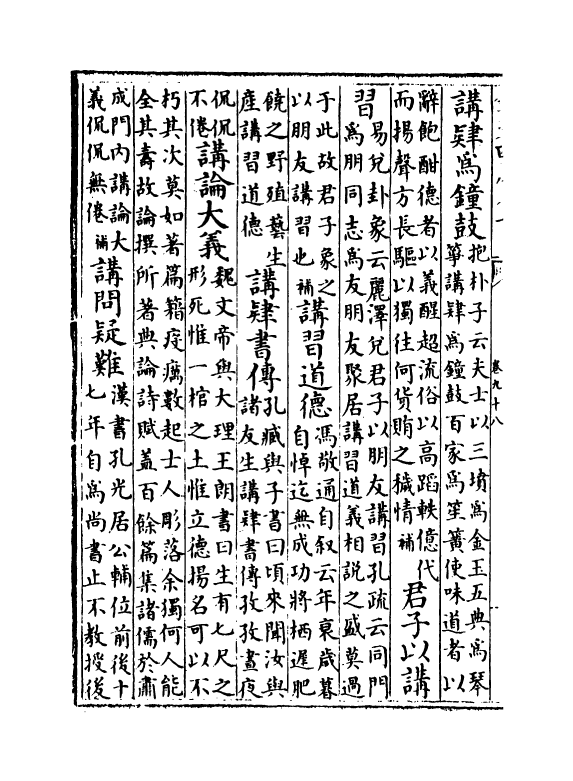 卷九十八
講肄為鐘鼓
抱朴子云夫士以三墳為金玉五典為琴
箏講肄為鐘鼓百家為笙簧使味道者以
辭飽酣德者以義醒超流俗以高蹈軼億代
而揚聲方長驅以獨往何貨賄之穢情補
君子以講
習
易兌卦象云麗澤兌君子以朋友講習孔疏云同門
為朋同志為友朋友聚居講習道義相説之盛莫過
于此故君子象之
以朋友講習也補
講習道德
馮敬通自叙云年衰歲暮
自悼迄無成功將栖遲肥
饒之野殖藝生
産講習道德
講肄書傳
孔臧與子書曰頃來聞汝與
諸友生講肄書傳孜孜晝夜
侃侃
不倦
講論大義
魏文帝與大理王朗書曰生有七尺之
形死惟一棺之土惟立德揚名可以不
朽其次莫如著篇籍疫癘數起士人彫落余獨何人能
全其壽故論撰所著典論詩賦蓋百餘篇集諸儒於肅
成門内講論大
義侃侃無倦補
講問疑難
漢書孔光居公輔位前後十
七年自為尚書止不教授後